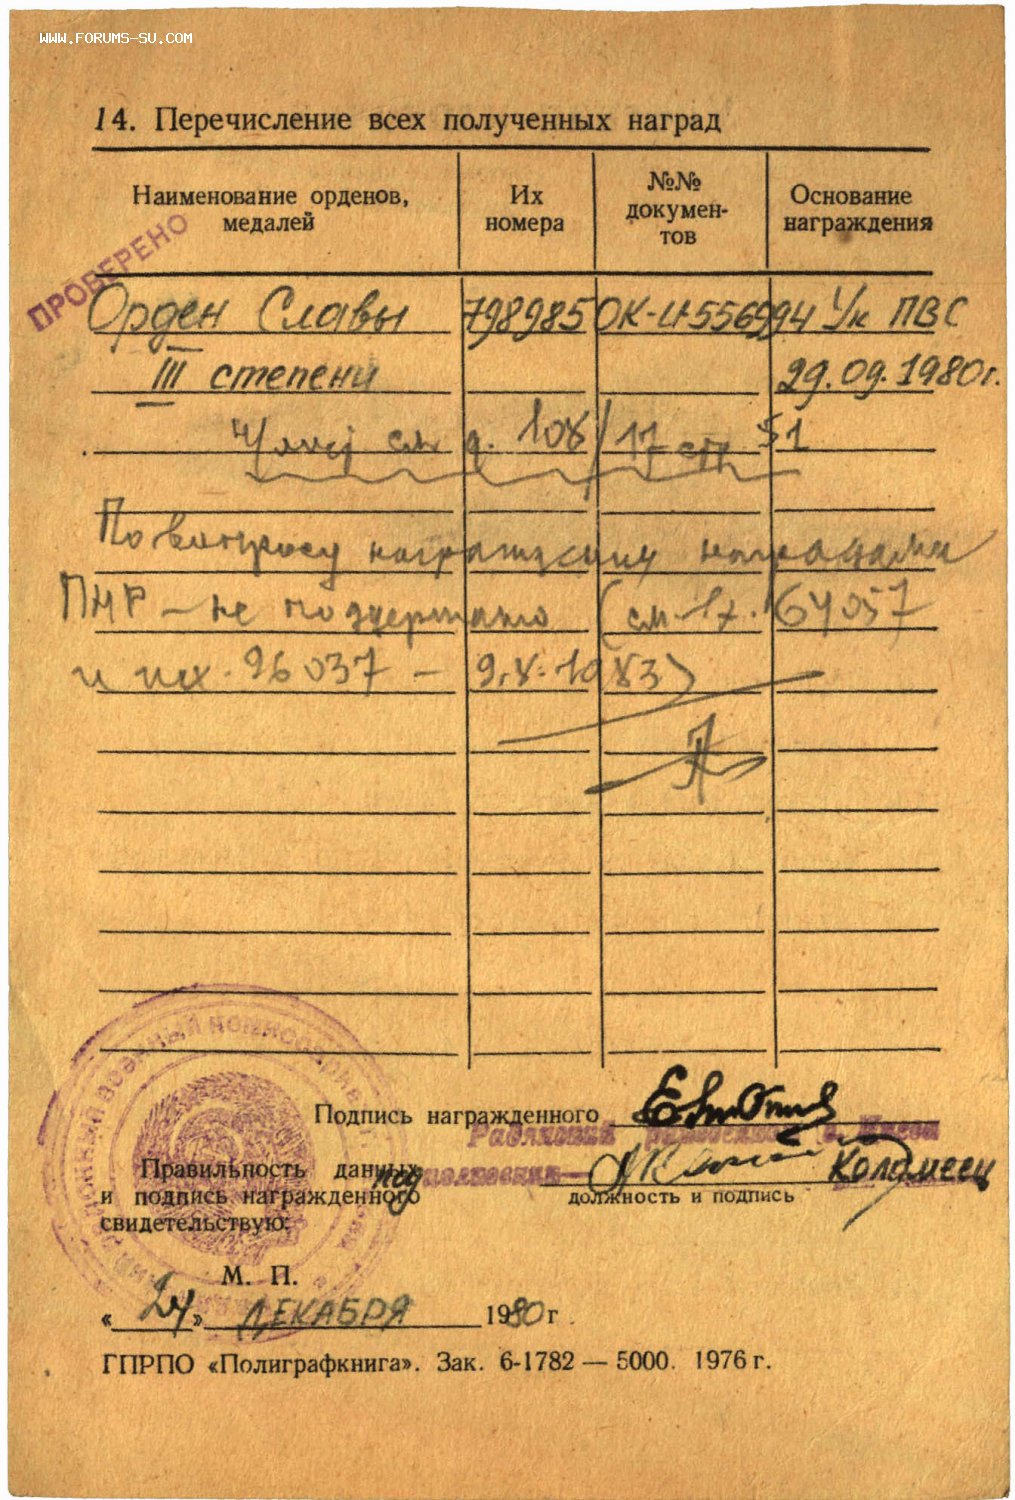 WWW.FORUMS-SU.COM
14. Перечисление всех полученных наград
Наименование орденов, медалей
Их номера
№№ докумен-тов
Основание награждения
ПРОВЕРЕНО
Орден Славы 798985 ОК-И 556994 Ук ПВС
III степени 29.09.1980г.
см д. 108/17 стр 51
По вопросу награждения наградами
ПНР — не поддержано (см. 17. 64057
и исх. 96037 — 9.8.1983)
Подпись награжденного
Правильность данных
и подпись награжденного
свидетельствую:
под полковник Коломеец
должность и подпись
М. П.
«24» ДЕКАБРЯ 1980 г.
ГПРПО «Полиграфкнига». Зак. 6-1782 — 5000. 1976 г.